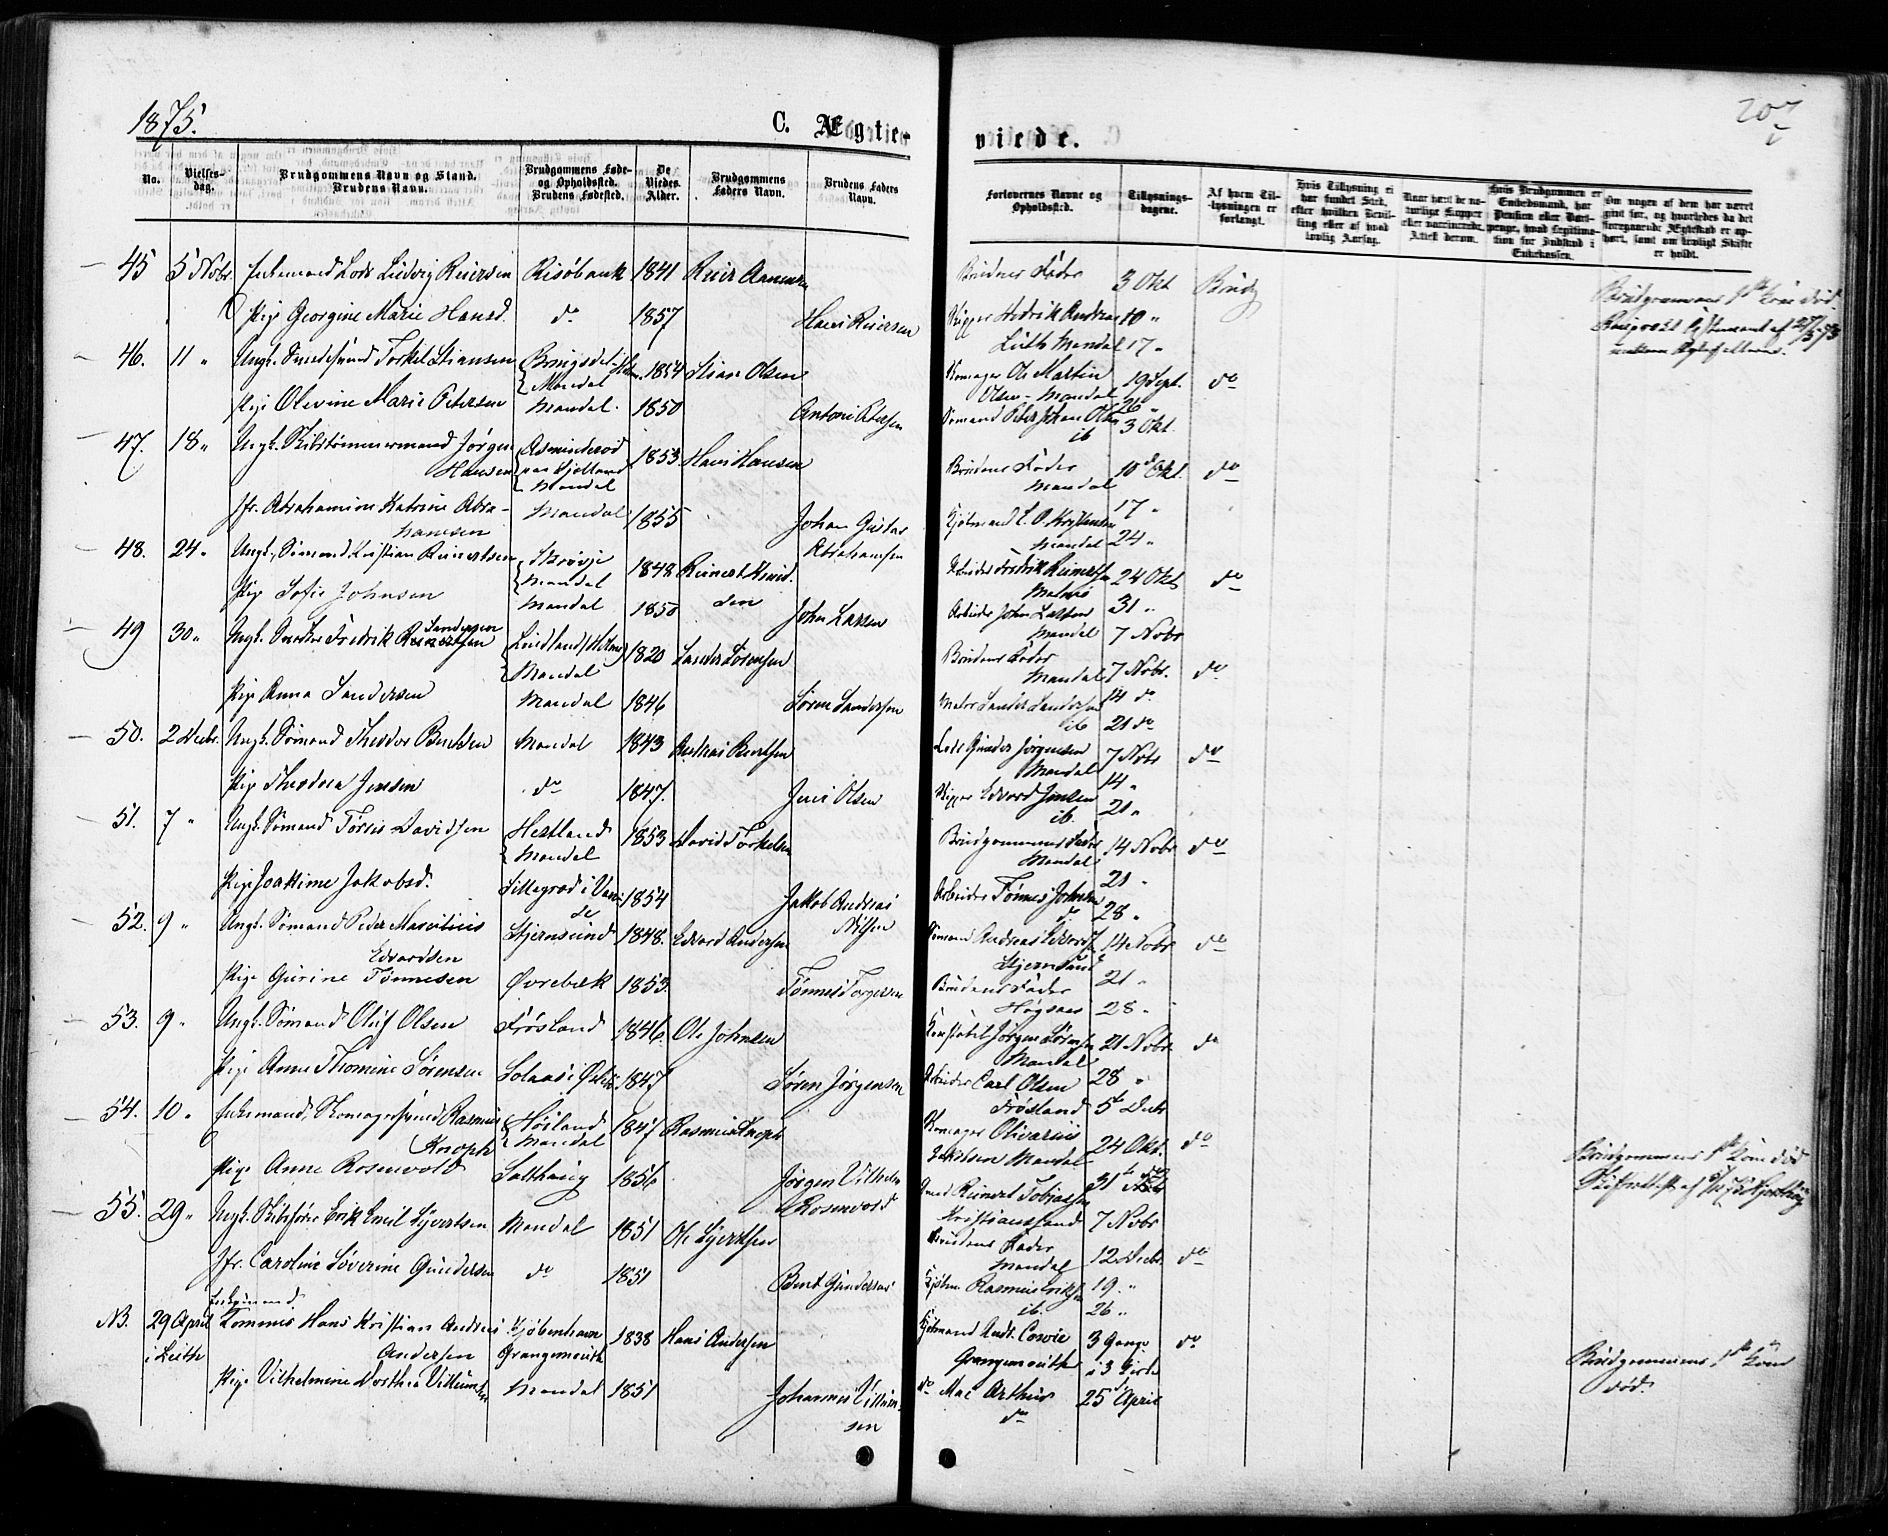 1875.
C. Ægteviede.
207
No.
Vielses-dag.
Brudgommens Navn og Stand.
Brudens Navn.
Brudgommens Føde- og Opholdssted.
Brudens Fødested.
De Viedes Alder.
Brudgommens Faders Navn.
Brudens Faders Navn.
Forlovernes Navne og Opholdssted.
Tillysnings-dagene.
Af hvem Til-lysningen er forlangt.
Hvis Tillysning ei har fundet Sted, efter hvilken Bevil-ling eller af hvad lovlig Aarsag.
Naar havt de na-turlige Kopper eller vaccinerede, Attest derom.
Hvis Brudgommen er Embedsmand, har Pension eller Vart-penge, hvad Legitima-tion for Indskud i Enkekassen.
Om nogen af dem har været gift før, og hvorledes da det foregaaende Ægteskab er op-hørt, samt om lovligt Skifte er holdt.
45 5 Nobr. Enkemand Lods Ludvig Reiersen Risøbank 1841 Reier Aanensen
Brudens Fader 3 Okt Brud
Brudgommens 1ste Kone død
Pige Georgine Marie Hansd. do 1857 Hans Reiersen
Skipper Fredrik Andreas 10 "
Lüth Mandal 17 "
46. 11 " Ungk. Smedesvend Torkel Stiansen Mandal 1854 Stian Olsen
Skomager Ole Martin Olsen - Mandal 19 Sept. do
Pige Olevine Marie Petersen Mandal. 1850 Antoni Petersen
Sømand Peter Johan Olsen ib 26 "
3 Okt.
47. 18 " Ungk. Skibstømmermand Jørgen Hansen Asminderød paa Sjelland Mandal 1853 Hans Hansen
Brudens Fader Mandal 10 Okt. do
Jfr. Abrahamine Katrine Abrahamsen Mandal 1855 Johan Gustav Abrahamsen
Kjøbmand Mandal 17 "
24 "
48. 24 " Ungk. Sømand Kristian Reinertsen Skrøvje Mandal 1848 Reinert
Arbeider Fredrik Reinertsen 24 Okt do
Pige Sofie Johnsen Mandal 1850 John Larsen
Arbeider John Larsen Mandal 31 "
7 Nobr
49 30 " Ungk. Snedker Fredrik Sandersen Lindland Mandal 1820 Sander Sørensen
Brudens Fader Mandal 7 Nobr. do
Pige Anna Sandersen Mandal 1846 Søren Sandersen
Sander Sandersen ib 14 do
21 do
50. 2 Decbr. Ungk. Sømand Theodor Berntsen Mandal 1843 Andreas Berntsen
Lods Gunder Jørgensen Mandal 7 Nobr do
Pige Theodora Jensen do 1847. Jens Olsen
Skipper Edvard Jensen ib. 14 "
21 "
51. 7 " Ungk. Sømand Tørris Davidsen Hestland Mandal 1853 David Torkelsen
Brudgommens Fader Mandal 14 Nobr do
Pige Joakime Jakobsd. 1854 Jakob Andreas Nilsen
Arbeider Tønnes Johnsen do 21 "
28 "
52. 9 " Ungk. Sømand Peder Marcelius Edvardsen Stjernsund 1848. Edvard Andersen
Sømand Andreas Edvards Stjernsund 14 Nobr do
Pige Gurine Tønnesen Øvrebæk 1853. Tønnes Torgersen
Brudens Fader 21 "
28 "
53. 9 " Ungk. Sømand Oluf Olsen Frøsland 1846. Ole Johnsen
Konstabel Jørgen Sørensen Mandal 21 Nobr. do
Pige Anne Thomine Sørensen 1847 Søren Jørgensen
Arbeider Carl Olsen Frøsland 28 "
5te Decbr
54. 10 " Enkemand, Skomagersvend Rasmus Knoph Høsland Mandal 1847 Rasmus Knoph
Skomager Olivarius Jakobsen Mandal 24 Okt. do
Brudgommens 1ste Kone død
Pige Anne Rosenvold Salthaug 1856 Jørgen Vilhelm Rosenvold
Smed Reinert Tobiassen Kristianssand 31te do
7 Nobr
55. 29 " Ungk. Skibsfører Erik Emil Syvertsen Mandal 1851 Ole Syvertsen
Brudens Fader Mandal 12 Decbr. do
Jfr. Caroline Severine Gundersen do 1851 Bernt Gundersen
Kjøbm. Rasmus Eriksen ib. 19 "
26 "
NB. 29 April i Leith Enkemand Kommis Hans Kristian Andreas Andersen Kjøbenhavn Grangemouth 1838 Hans Andersen
Kjøbmand Andr. Cowie Grangemouth 3 Gange i 3 Kirke do
Brudgommens 1ste Kone død.
Pige Vilhelmine Dorthea Villumsen Mandal 1851 Johannes Villumsen
do Mac Arthur do 25 April